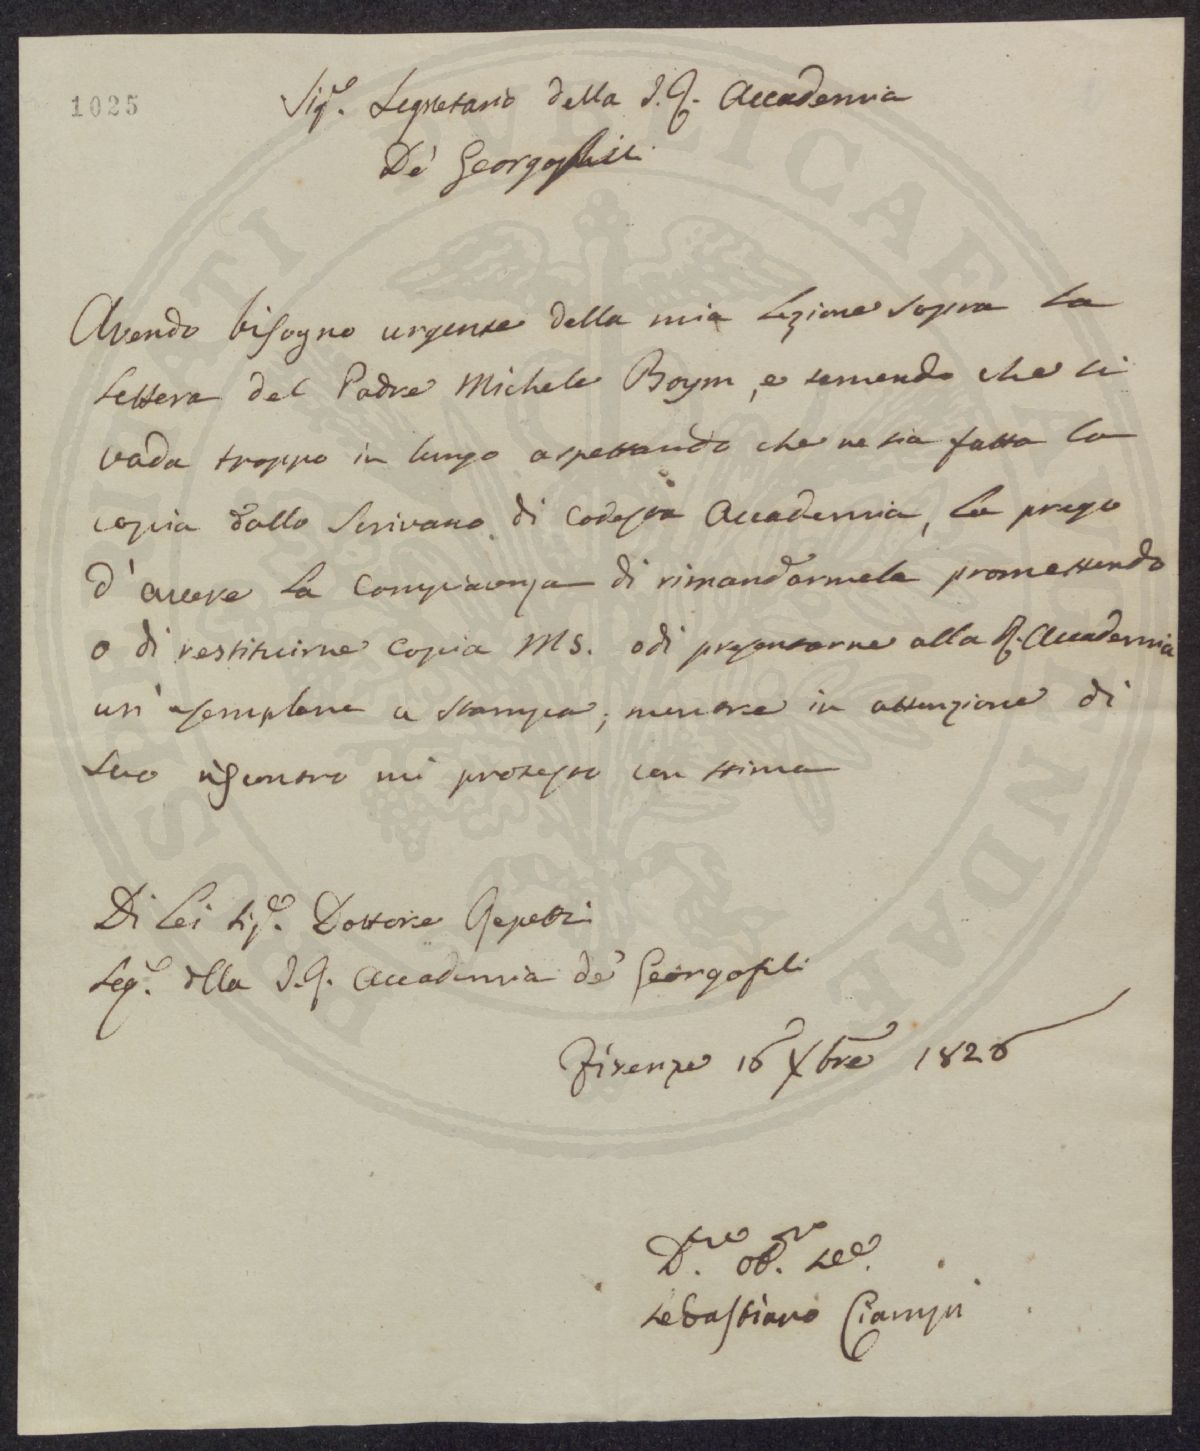 1025
Sig.e Segretario della I. R. Accademia
De' Georgofili
Avendo bisogno urgente della mia Lezione sopra la
Lettera del Padre Michele Boym, e temendo che si
vada troppo in lungo aspettando che ne sia fatta la
copia dallo Scrivano di codesta Accademia, La prego
d'avere la compiacenza di rimandarmela promettendo
o di restituirne copia Ms. o di presentarne alla R. Accademia
un' esemplare a stampa; mentre in attenzione di
suo riscontro mi protesto con stima
Di Lei Sig.e Dottore Repetti
Seg.e della I. R. Accademia de' Georgofili
Firenze 16 Xbre 1826
D.mo ob.mo Se.e
Sebastiano Ciampi
PUBLICAE